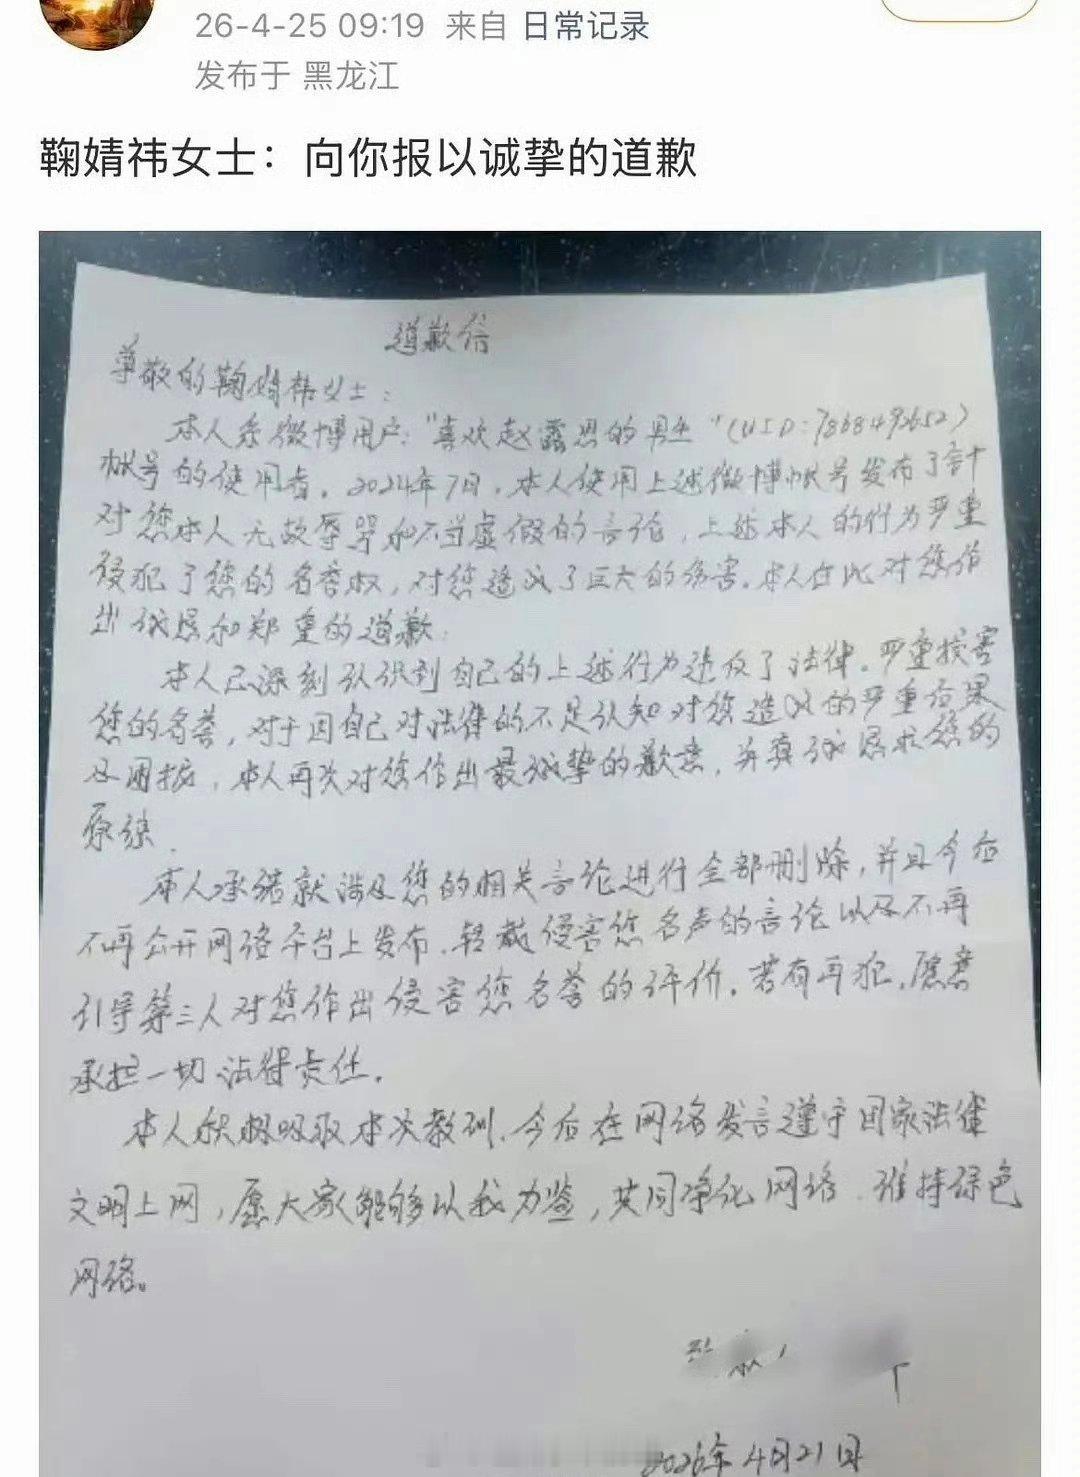 26-4-25 09:19 来自 日常记录
发布于 黑龙江
鞠婧祎女士：向你报以诚挚的道歉
道歉信
尊敬的鞠婧祎女士：
本人系微博用户："喜欢赵露思的男生"(UID:7868492652)
帐号的使用者。2024年7月，本人使用上述微博帐号发布了
对您本人无故辱骂和不当虚假的言论，上述本人的行为严重
侵犯了您的名誉权，对您造成了巨大的伤害。本人在此对您作
出诚恳和郑重的道歉.
本人已深刻认识到自己的上述行为违反了法律。严重损害
您的名誉，对于因自己对法律的不足认知对您造成的严重后果
及困扰，本人再次对您作出最诚挚的歉意，并真诚恳求您的
原谅.
本人承诺就涉及您的相关言论进行全部删除，并且今后
不再公开网络平台上发布、转载侵害您名声的言论以及不再
引导第三人对您作出侵害您名誉的评价。若有再犯，愿意
承担一切法律责任。
本人积极吸取本次教训，今后在网络发言遵守国家法律
文明上网，愿大家能够以我为鉴，共同净化网络、维持绿色
网络。
2026年4月21日